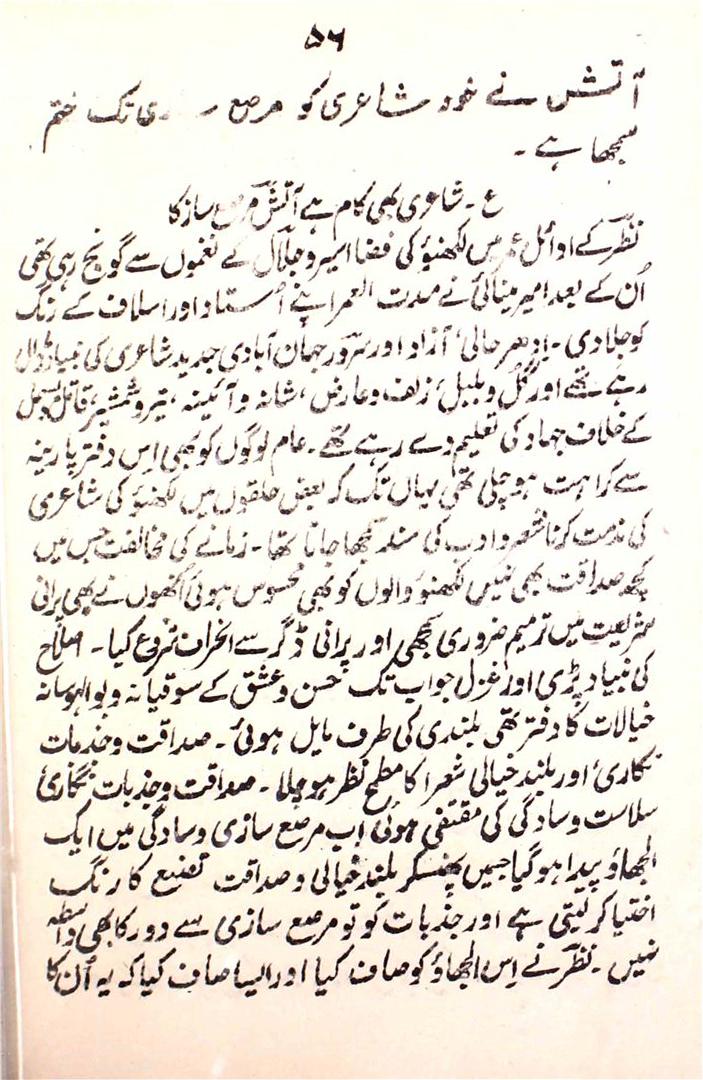 ۵۶
آتش نے خود شاعری کو مرصع سازی تک ختم
سمجھا ہے ۔
ع ۔ شاعری بھی کام ہے آتش مرصع ساز کا
نظر کے اوائل عمر میں لکھنؤ کی فضا امیر و جلال کے نغموں سے گونج رہی تھی
اُن کے بعد امیر مینائی نے مدت العمر اپنے اُستاد اور اسلاف کے رنگ
کو جلا دی ۔ اِدھر حالی، آزاد اور سرور جہان آبادی جدید شاعری کی بنیاد ڈال
رہے تھے اور گل و بلبل، زلف و عارض، شانہ و آئینہ، تیر و شمشیر، قاتل و بسمل
کے خلاف جہاد کی تعلیم دے رہے تھے ۔ عام لوگوں کو بھی اِس دفتر پارینہ
سے کراہت ہو چلی تھی یہاں تک کہ بعض حلقوں میں لکھنؤ کی شاعری
کی مذمت کرنا شعر و ادب کی سند سمجھا جاتا تھا ۔ زمانے کی مخالفت جس میں
کچھ صداقت بھی تھی لکھنؤ والوں کو بھی محسوس ہوئی اُنھوں نے بھی پرانی
شریعت میں ترمیم ضروری سمجھی اور پرانی ڈگر سے انحراف شروع کیا ۔ اصلاح
کی بنیاد پڑی اور غزل جو اب تک حسن و عشق کے سوقیانہ و بوالہوسانہ
خیالات کا دفتر تھی بلندی کی طرف مایل ہوئی ۔ صداقت و جذبات
نگاری اور بلند خیالی شعرا کا مطمح نظر ہو چلا ۔ صداقت و جذبات نگاری
سلاست و سادگی کی مقتضی ہوئی اب مرصع سازی و سادگی میں ایک
الجھاؤ پیدا ہو گیا جس میں پھنسکر بلند خیالی و صداقت تصنع کا رنگ
اختیا کر لیتی ہے اور جذبات کو تو مرصع سازی سے دور کا بھی واسطہ
نہیں ۔ نظر نے اِس الجھاؤ کو صاف کیا اور ایسا صاف کیا کہ یہ اُن کا